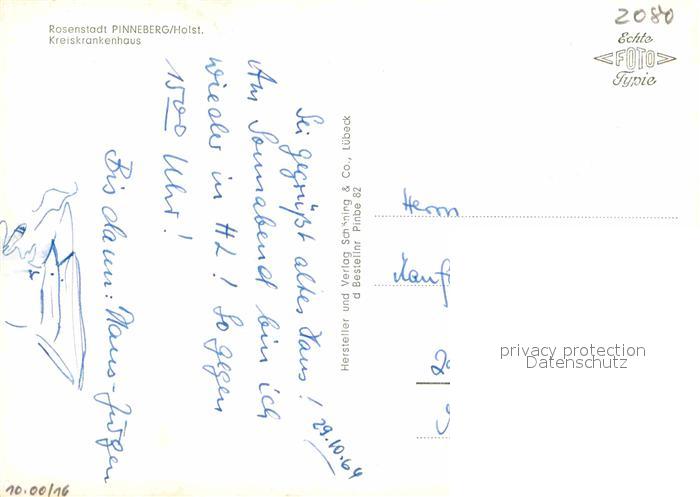 Rosenstadt PINNEBERG/Holst.
Kreiskrankenhaus
2080
Echte
FOTO
Typie
Sei gegrüßt altes Haus!
Am Sonnabend bin ich
wieder in HL! So gegen
1500 Uhr!
Bis dann: Hans-Jürgen
29.10.64
Hersteller und Verlag Schöning & Co., Lübeck
d Bestellnr Pinbe 82
Herrn
Kauf
privacy protection
Datenschutz
10.00/16